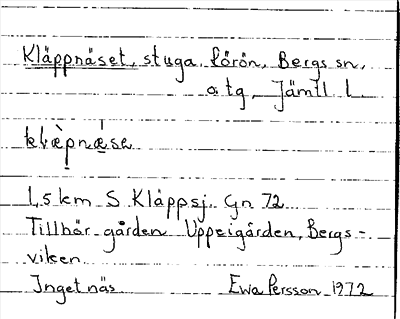 Kläppnäset, stuga, Rörön, Bergs sn,
o tg, Jämtl. l.
klæ̀pnǽse
1,5 km S Kläppsj. Gn 72
Tillhör gården Uppeigården, Bergs-
viken
Inget näs Ewa Persson 1972